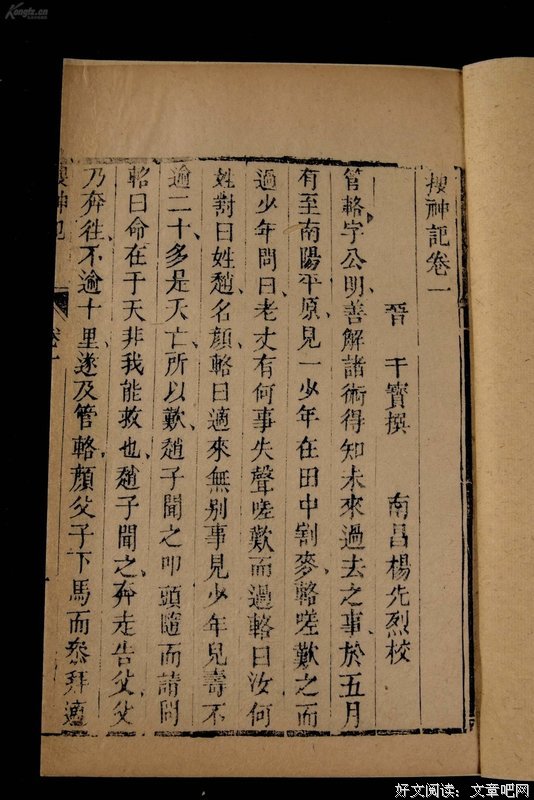 搜神記卷一
晉　干寶撰　南昌楊先烈校
管輅字公明善解諸術得知未來過去之事於五月
有至南陽平原見一少年在田中割麥輅嗟歎之而
過少年問曰老丈有何事失聲嗟歎而過輅曰汝何
姓對曰姓趙名顏輅曰適來無別事見少年兒壽不
逾二十多是夭亡所以歎趙子聞之叩頭隨而請問
輅曰命在于天非我能救也趙子聞之奔走告父父
乃奔往不逾十里遂及管輅顏父子下馬而叅拜適
搜神記　卷一
Kongfz.cn
好文阅读：文章吧网